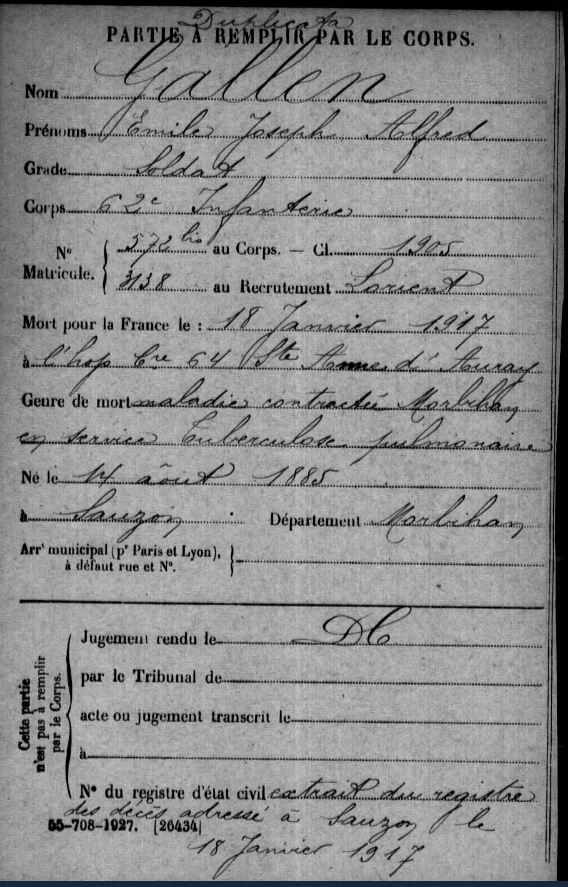 Duplicata
PARTIE A REMPLIR PAR LE CORPS.
Nom Gallen
Prénoms Emile Joseph Alfred
Grade Soldat
Corps 62e Infanterie
N° Matricule. 572 bis au Corps. — Cl. 1905
3138 au Recrutement Lorient
Mort pour la France le : 18 Janvier 1917
à l'hop Cre 64 Ste Anne d'Auray
Genre de mort maladie contractée Morbihan
en service Tuberculose pulmonaire
Né le 14 août 1885
à Sauzon Département Morbihan
Arrt municipal (pr Paris et Lyon),
à défaut rue et N°.
Cette partie n'est pas à remplir par le Corps.
Jugement rendu le
par le Tribunal de
acte ou jugement transcrit le
à
N° du registre d'état civil extrait du registre
des décès adressé à Sauzon le
55-708-1927. [26434]
18 Janvier 1917